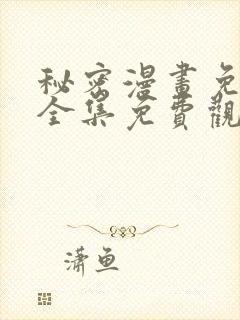 秘密漫畫免
全集免費觀
潇鱼